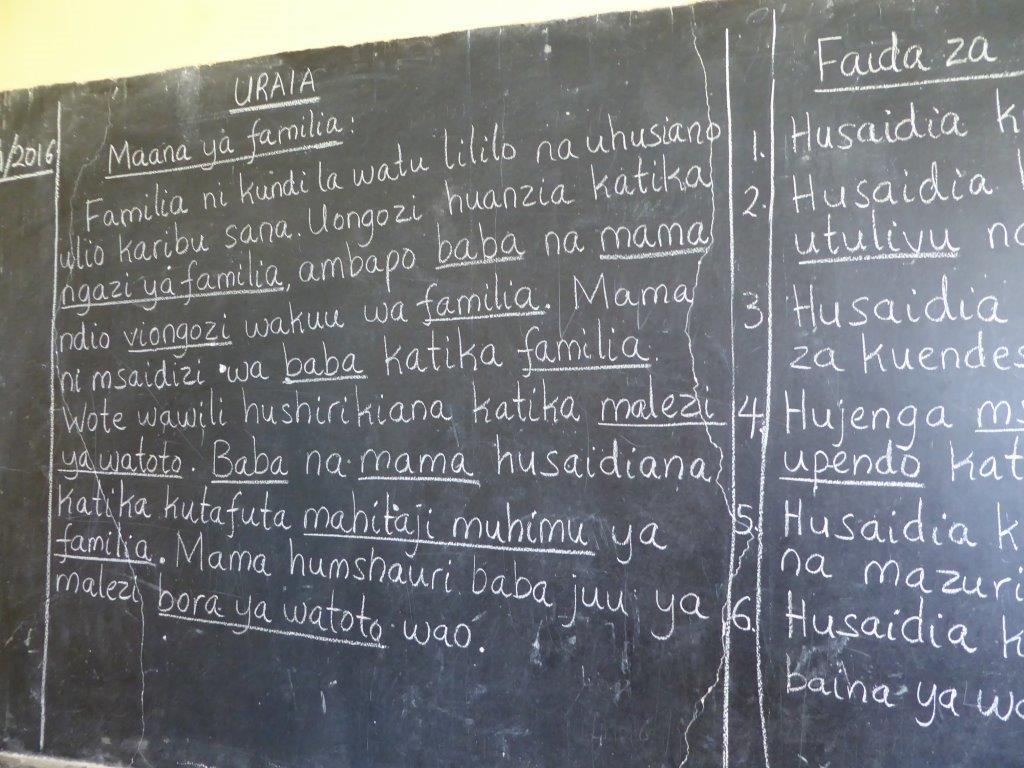 /2016
URAIA
Maana ya familia:
Familia ni kundi la watu lililo na uhusiano
ulio karibu sana. Uongozi huanzia katika
ngazi ya familia, ambapo baba na mama
ndio viongozi wakuu wa familia. Mama
ni msaidizi wa baba katika familia.
Wote wawili hushirikiana katika malezi
ya watoto. Baba na mama husaidiana
katika kutafuta mahitaji muhimu ya
familia. Mama humshauri baba juu ya
malezi bora ya watoto wao.
Faida za
1. Husaidia k
2. Husaidia
utulivu na
3 Husaidia
za kuendes
4. Hujenga ms
upendo kat
5. Husaidia k
na mazuri
6. Husaidia k
baina ya wa